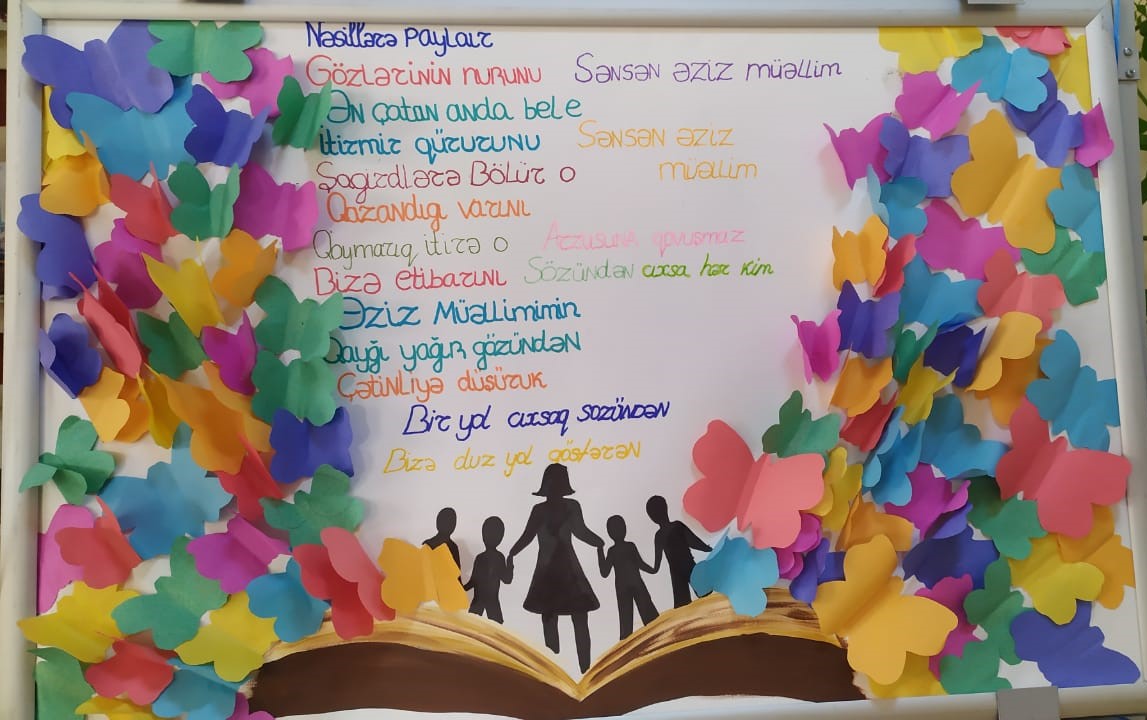 Nəsillərə paylar
Gözlərinin nurunu
Sənsən əziz müəllim
Ən çətin anda bele
İtirmir qürurunu
Sənsən əziz
müəllim
Şagirdlərə Bölür o
Qazandıgı varını
Qoymarıq itirə o
Arzusuna qovuşmaz
Bizə etibarını
Sözündən cıxsa hər kim
Əziz Müəllimimin
Qayğı yağır gözündən
Çətinliyə düşürük
Bir yol cıxsaq sozündən
Bizə duz yol göstərən